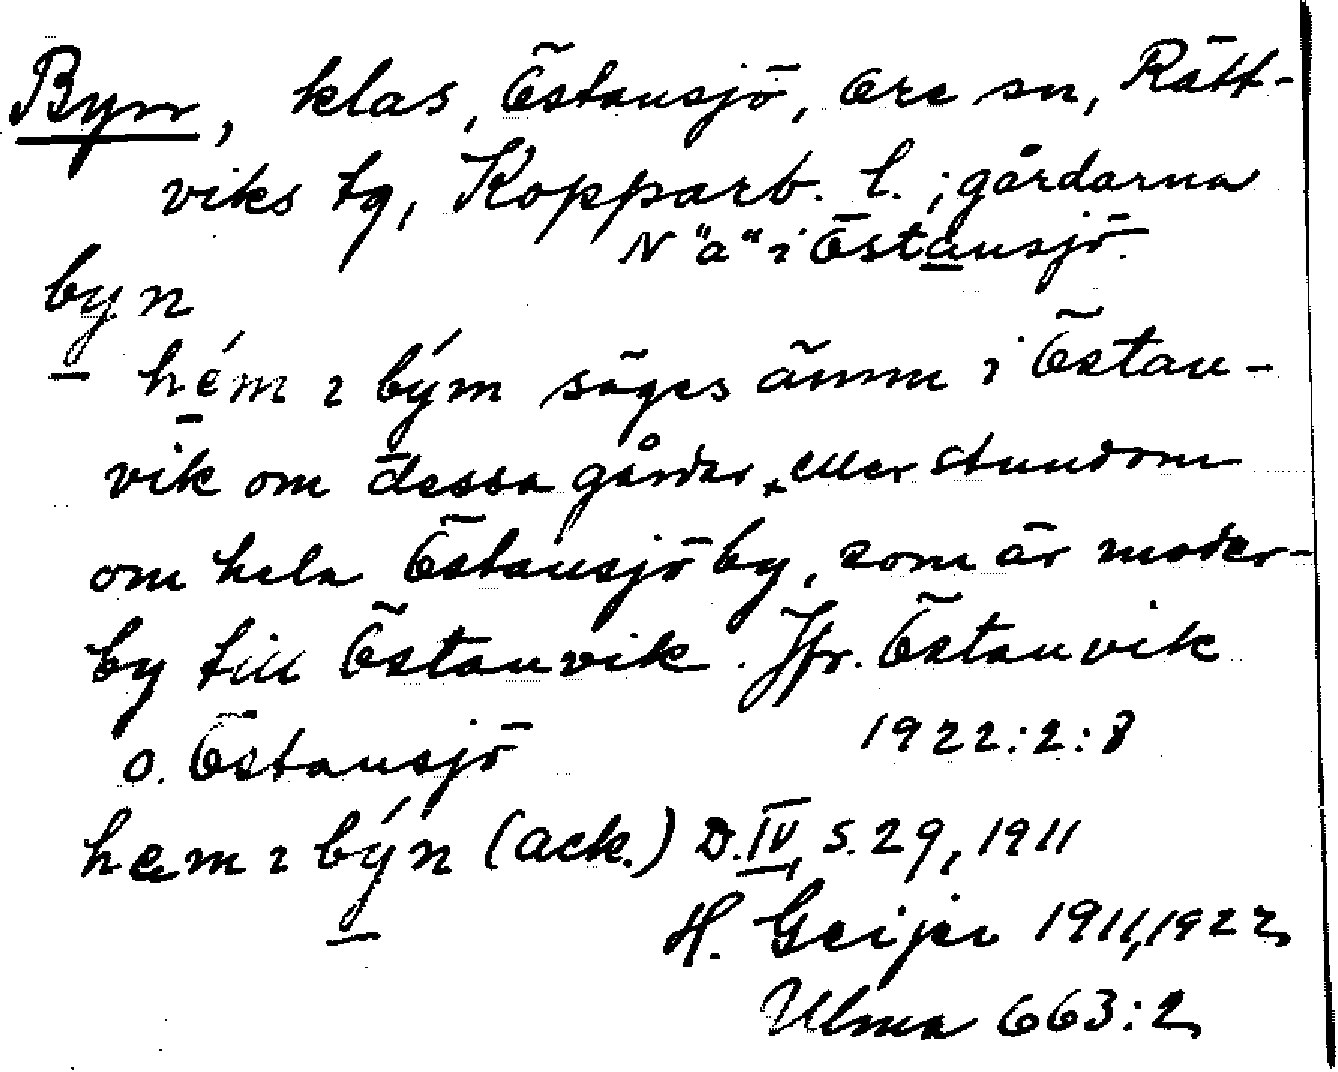 Byn, klas, Östansjö, Ore sn, Rätt-
viks tg, Kopparb. l.; gårdarna
N "a" i Östansjö.
byn
hém ı bým säges ännu i Östan-
vik om dessa gårdar, eller stundom
om hela Östansjö by, som är moder-
by till Östanvik. Jfr. Östanvik
o. Östansjö 1922:2:8
hem ı býn (ack.) D.IV, s. 29, 1911
H. Geijer 1911, 1922
Ulma 663:2